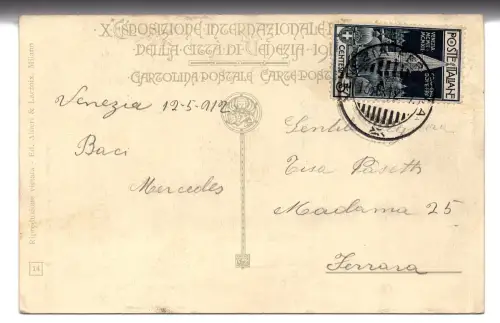 X ESPOSIZIONE INTERNAZIONALE
DELLA CITTÀ DI VENEZIA - 191
CARTOLINA POSTALE CARTE POST
POSTE ITALIANE
CENTES
Venezia 12-5-912
Baci
Mercedes
Gentile
Tisa Pasetti
Madama 25
Ferrara
Riproduzione vietata - Ed. Alfieri & Lacroix, Milano
14